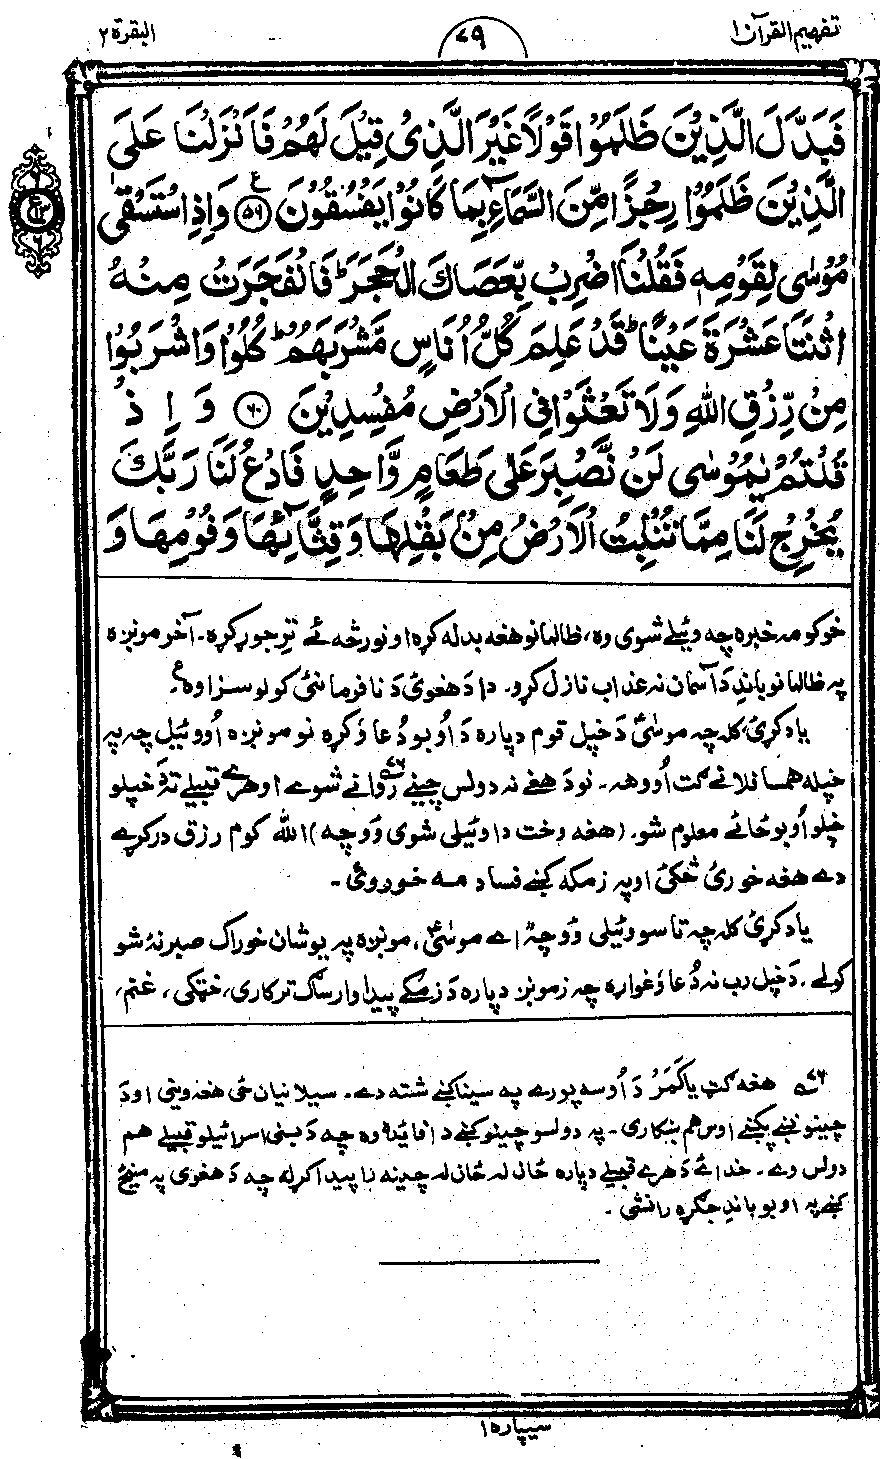 تفهيم القرآن ١
٧٩
البقرة ٢
فَبَدَّلَ الَّذِيْنَ ظَلَمُوْا قَوْلًا غَيْرَ الَّذِىْ قِيْلَ لَهُمْ فَاَنْزَلْنَا عَلَى
الَّذِيْنَ ظَلَمُوْا رِجْزًا مِّنَ السَّمَآءِ بِمَا كَانُوْا يَفْسُقُوْنَ ﴿٥٩﴾ وَاِذِ اسْتَسْقٰى
مُوْسٰى لِقَوْمِهٖ فَقُلْنَا اضْرِبْ بِّعَصَاكَ الْحَجَرَ ؕ فَانْفَجَرَتْ مِنْهُ
اثْنَتَا عَشْرَةَ عَيْنًا ؕ قَدْ عَلِمَ كُلُّ اُنَاسٍ مَّشْرَبَهُمْ ؕ كُلُوْا وَاشْرَبُوْا
مِنْ رِّزْقِ اللهِ وَلَا تَعْثَوْا فِى الْاَرْضِ مُفْسِدِيْنَ ﴿٦٠﴾ وَ اِ ذْ
قُلْتُمْ يٰمُوْسٰى لَنْ نَّصْبِرَ عَلٰى طَعَامٍ وَّاحِدٍ فَادْعُ لَنَا رَبَّكَ
يُخْرِجْ لَنَا مِمَّا تُنْۢبِتُ الْاَرْضُ مِنْۢ بَقْلِهَا وَقِثَّآئِهَا وَفُوْمِهَا وَ
خو كومه خبره چه وئيلے شوى وه، ظالمانو هغه بدله كړه او نور څه ئے ترِ جوړ كړه۔ آخر مونږه
په ظالمانو باندِ دَ آسمان نه عذاب نازل كړو۔ دا دَ هغوئ دَ نافرمانئ كولو سزا وه ع۔
ياد كړئ كله چه موسٰى دَ خپل قوم دپاره دَ اُوبو دُعا وَكړه نو مونږه اُووئيل چه په
خپله همسا فلانے گټ اُووهه۔ نو دَ هغے نه دولس چينے روانے شوے ٧٦ او هرے قبيلے ته دَ خپلو
خپلو اُوبو ځائے معلوم شو۔ (هغه وخت دا وئيلى شوى وُو چه) الله كوم رزق دركړے
دے هغه خورئ څكئ او په زمكه كښے فساد مه خوروئ۔
ياد كړئ كله چه تاسو وئيلى وُو چه اے موسٰى، مونږه په يو شان خوراك صبر نۀ شو
كولے۔ دَ خپل رب نه دُعا وَغواړه چه زمونږ دپاره دَ زمكے پيداوار ساگ تركارى، ختكى، غنم،
٧٦ هغه گټ يا كَمَرْ دَ اُوسه پورے په سينا كښے شته دے۔ سيلانيان ځى هغه وينى او دَ
چينو نښے پكښے اوس هم ښكارى۔ په دولسو چينو كښے دا فائده وه چه دَ بنى اسرائيلو قبيلے هم
دولس وے۔ خدائے دَ هرے قبيلے دپاره ځان له ځان له چينه را پيدا كړله چه دَ هغوى په مينځ
كښے په اوبو باندِ جگړه رانشى۔
سيپاره ١